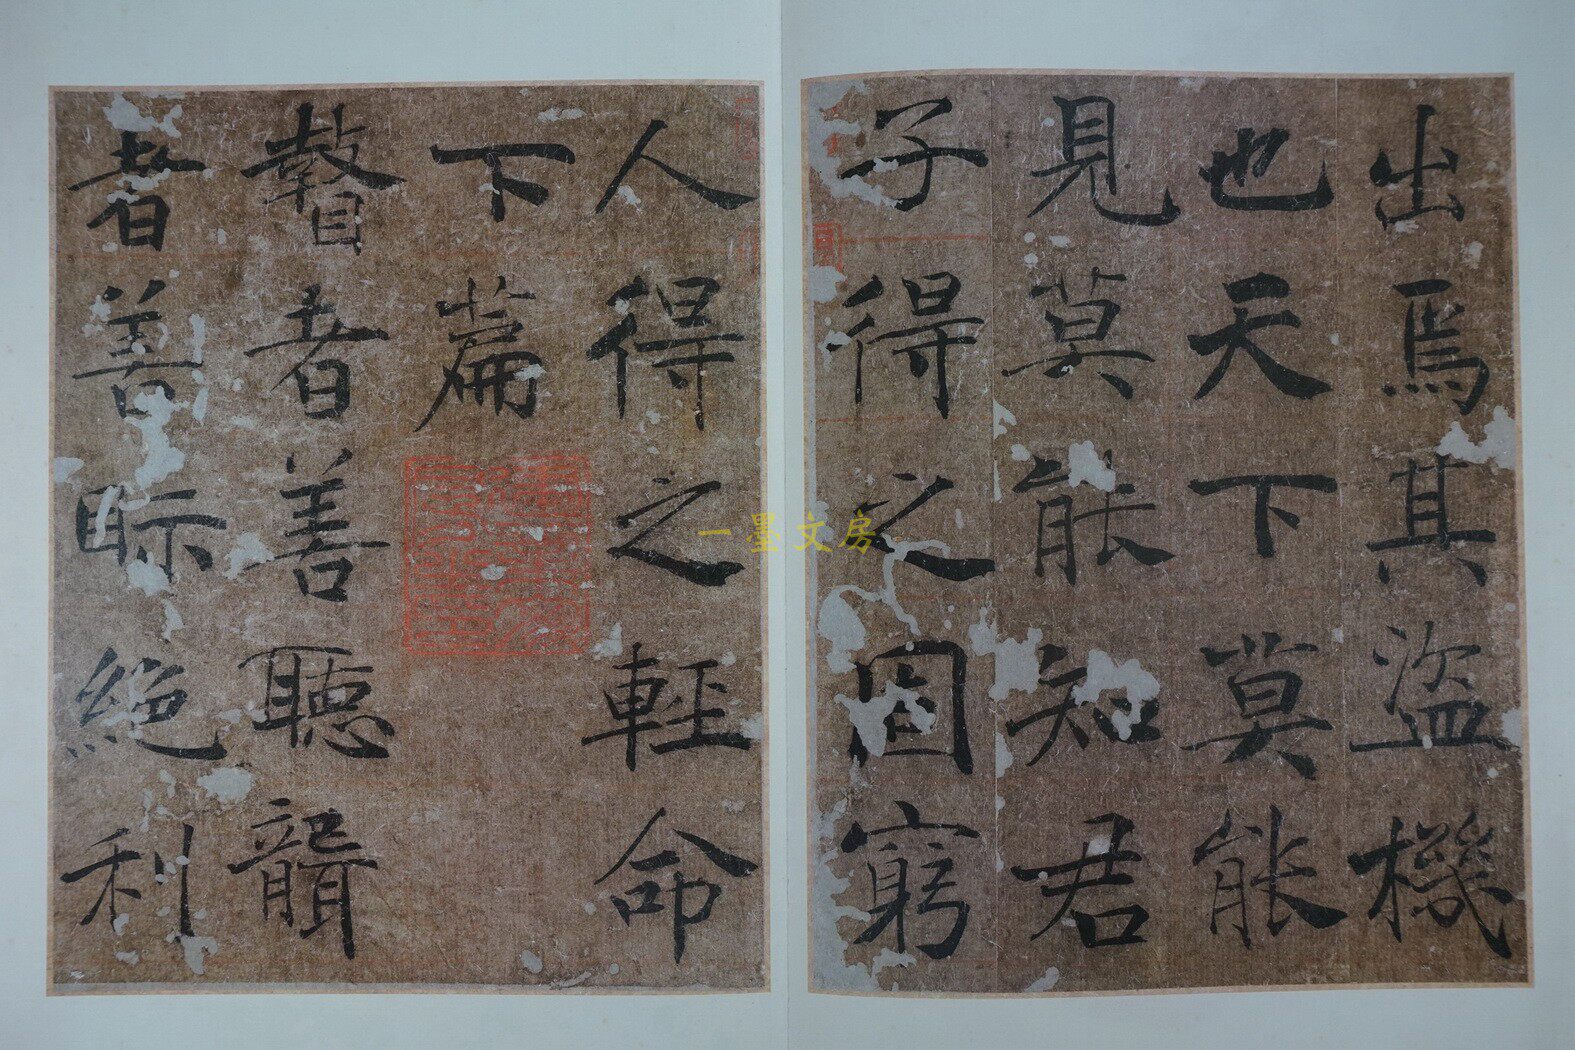 出焉其盜機
也天下莫能
見莫能知君
子得之固窮
人得之輕命
下篇
瞽者善聽聾
者善眎絕利
一墨文房